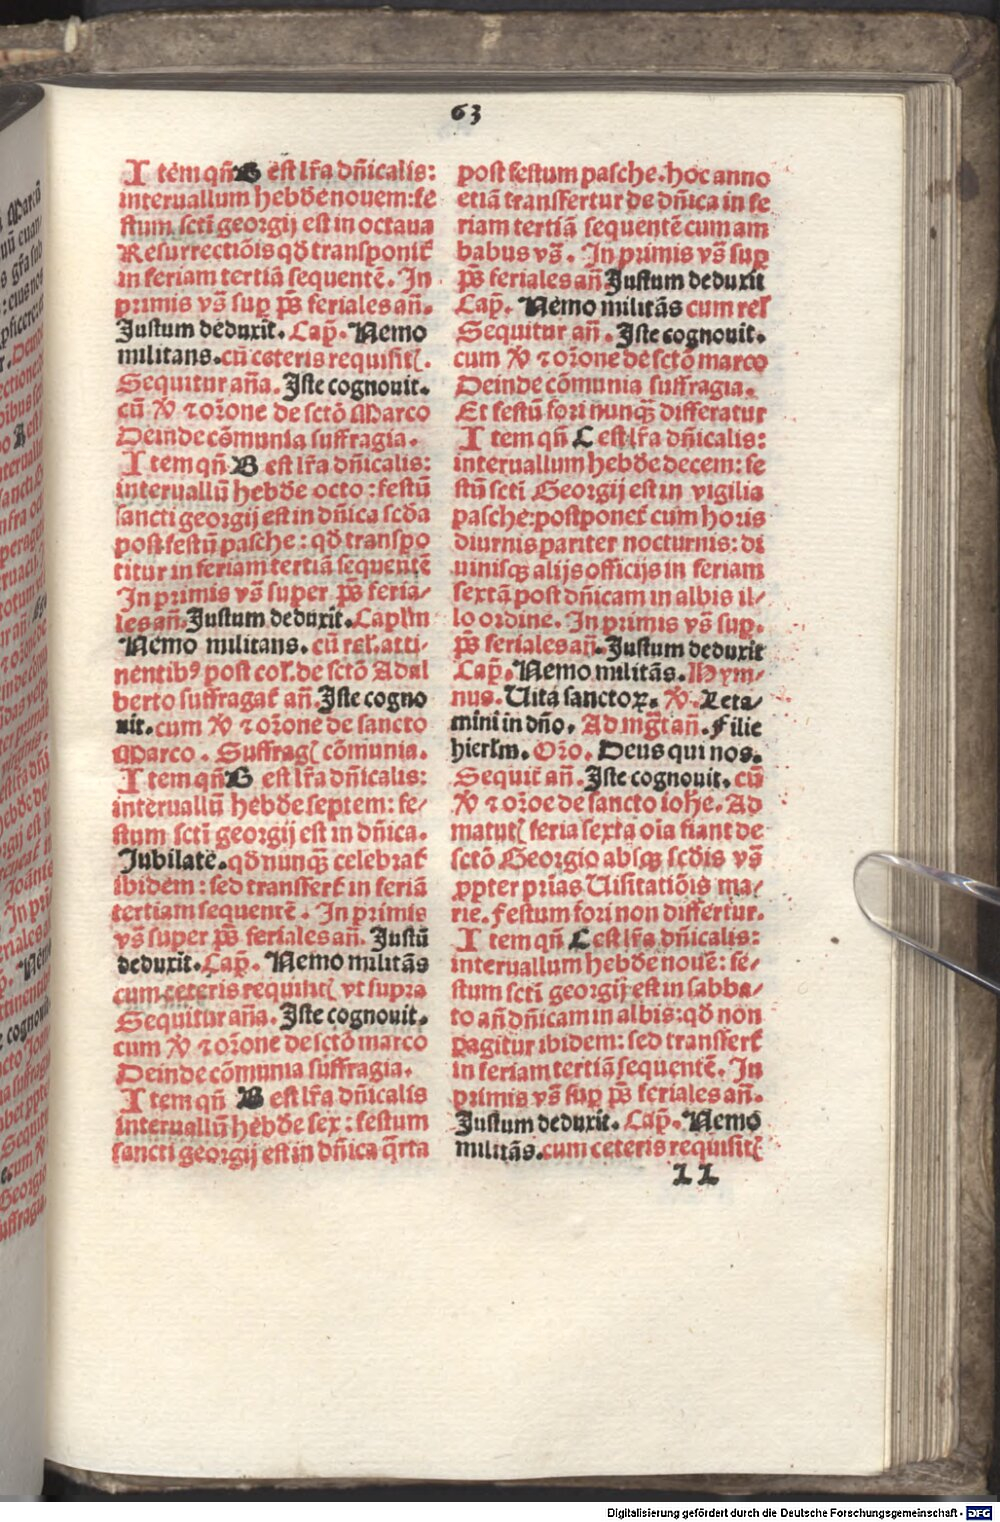 63
Item qñ B est lr̃a dñicalis:
interuallum hebđe nouem: fe
stum sctī georgij est in octaua
Resurrectiōis qđ transponit̃
in feriam tertiā sequentē. In
primis vs̃ sup ps̃ feriales añ.
Justum deduxit. Cap̃. Nemo
militans. cū ceteris requisit̃.
Sequitur aña. Iste cognouit.
cū ꝟ ⁊ or̃one de sctō Marco
Deinde cōmunia suffragia.
Item qñ B est lr̃a dñicalis:
interuallū hebđe octo: festū
sancti georgij est in dñica scđa
post festū pasche: qđ transpo
titur in feriam tertiā sequentē
In primis vs̃ super ps̃ feria/
les añ. Justum deduxit. Caplm̃
Nemo militans. cū rel̃. atti-
nentibꝰ post col̃. de sctō Adal
berto suffragat̃ añ. Iste cogno
uit. cum ꝟ ⁊ or̃one de sancto
Marco. Suffrag̃ cōmunia.
Item qñ B est lr̃a dñicalis:
interuallū hebđe septem: fe/
stum sctī georgij est in dñica.
Jubilatē. qđ nunqꝫ celebrat̃
ibidem: sed transfert̃ in feriā
tertiam sequentē. In primis
vs̃ super ps̃ feriales añ. Justū
deduxit. Cap̃. Nemo militās
cum ceteris requisit̃ vt supra
Sequitur aña. Iste cognouit.
cum ꝟ ⁊ or̃one de sctō marco
Deinde cōmunia suffragia.
Item qñ B est lr̃a dñicalis
interuallū hebđe sex: festum
sancti georgij est in dñica q̃rta
post festum pasche. hoc anno
etiā transfertur de dñica in fe
riam tertiā sequentē cum am
babus vs̃. In primis vs̃ sup
ps̃ feriales añ Justum deduxit
Cap̃. Nemo militās cum rel̃
Sequitur añ. Iste cognouit.
cum ꝟ ⁊ or̃one de sctō marco
Deinde cōmunia suffragia.
Et festū fori nunqꝫ differatur
Item qñ C est lr̃a dñicalis:
interuallum hebđe decem: fe
stū sctī Georgij est in vigilia
pasche: postponet̃ cum horis
diurnis pariter nocturnis: di
uinisqꝫ alijs officijs in feriam
sextā post dñicam in albis il/
lo ordine. In primis vs̃ sup.
ps̃ feriales añ. Justum deduxit
Cap̃. Nemo militās. Hym/
nus. Uita sanctoꝝ. ꝟ. Leta/
mini in dño. Ad mg̃t añ. Filie
hierlm̃. Or̃o. Deus qui nos.
Sequit̃ añ. Iste cognouit. cū
ꝟ ⁊ or̃oe de sancto ioh̃e. Ad
matut̃ feria sexta oīa fiant de
sctō Georgio absqꝫ scđis vs̃
ꝓpter pr̃ias Uisitatiōis ma/
rie. Festum fori non differtur.
Item qñ C est lr̃a dñicalis:
interuallum hebđe nouē: fe/
stum sctī georgij est in sabba/
to añ dñicam in albis: qđ non
pagitur ibidem: sed transfert̃
in feriam tertiam sequentē. In
primis vs̃ sup ps̃ feriales añ.
Justum deduxit. Cap̃. Nemō
militās. cum ceteris requisit̃
LL
Digitalisierung gefördert durch die Deutsche Forschungsgemeinschaft - DFG